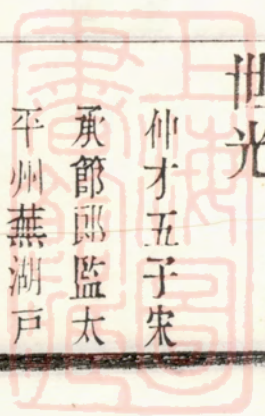 世光
仲才五子宋
承節郎監太
平州蕪湖戶